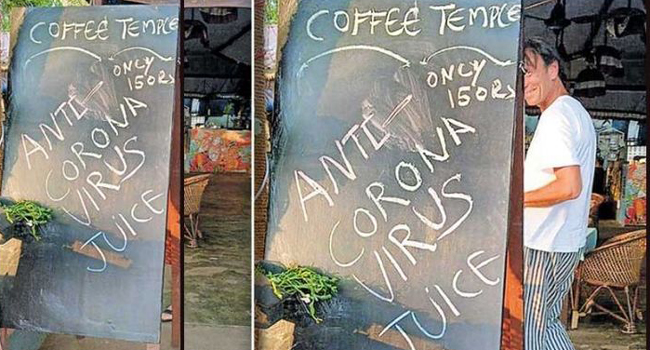 COFFEE TEMPLE
ONLY
150RS
ANTI-
CORONA
VIRUS
JUICE
COFFEE TEMPLE
ONLY
150RS
ANTI-
CORONA
VIRUS
JUICE